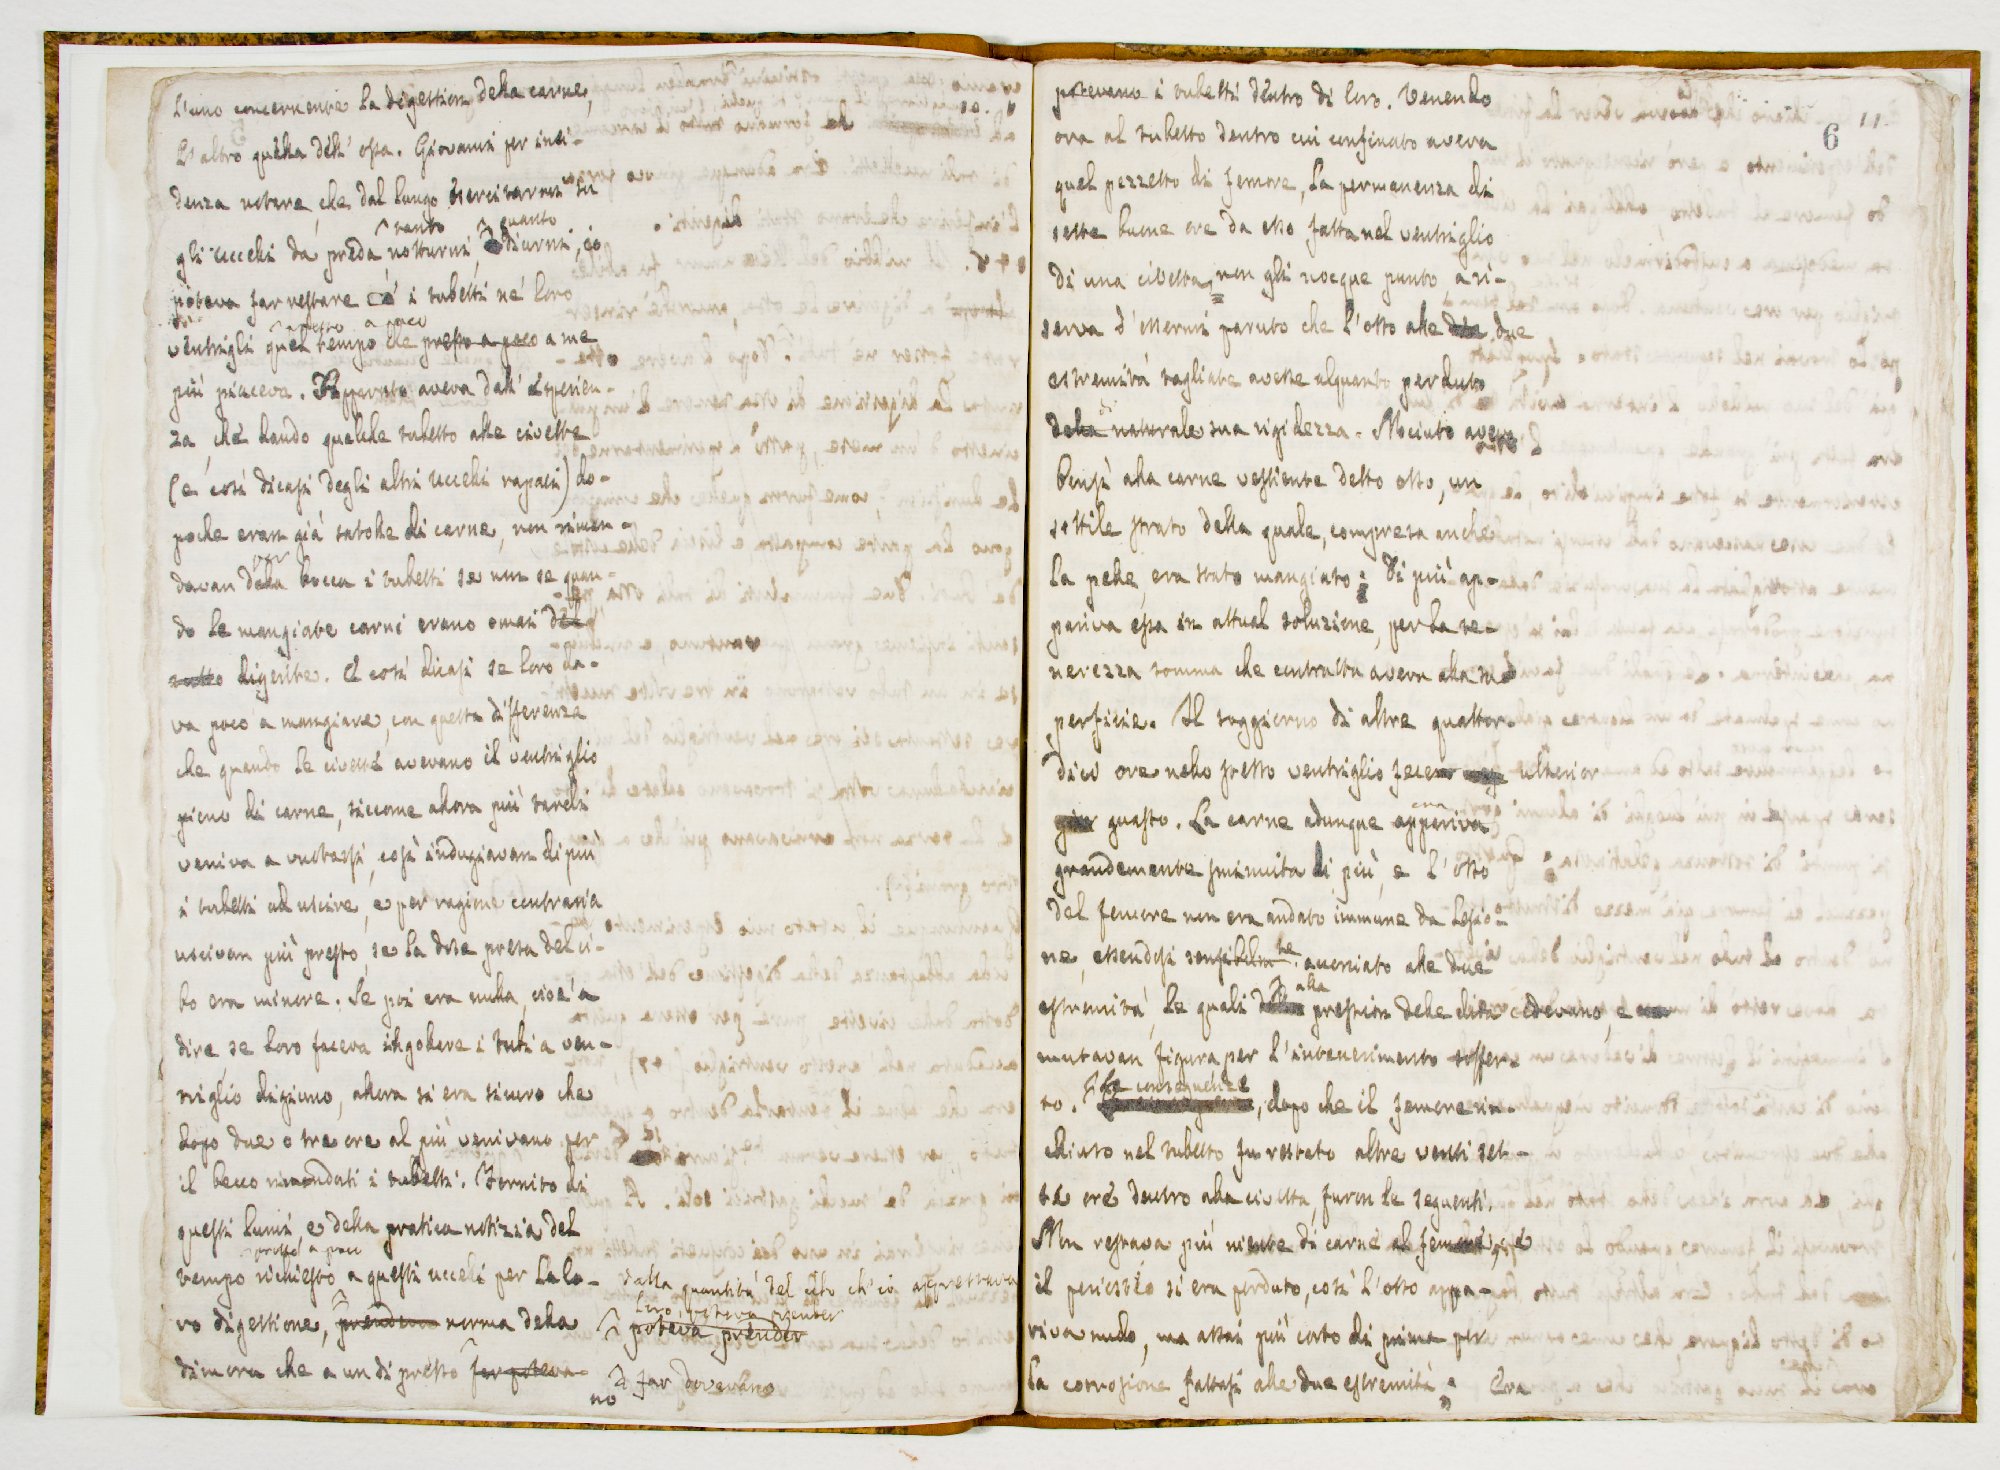 L'uno concernente la digestion della carne,
L'altro quella dell' ossa. Giovami per inci-
denza notare, che dal lungo esercitarmi su
tanto quanto
gli uccelli da preda notturni, diurni, io
poteva far restare i tubetti ne' loro
presso a poco
ventrigli quel tempo che presso a poco a me
più piaceva. Apparato aveva dall' esperien-
za, che dando qualche tubetto alle civette
(e così dicasi degli altri uccelli rapaci) do-
poche eran già satolle di carne, non riman-
per
davan dalla bocca i tubetti se non se quan-
do le mangiate carni erano omai del
tutto digerite. E così dicasi se loro da-
va poco a mangiare, con questa differenza
che quando le civette avevano il ventriglio
pieno di carne, siccome allora più tardi
veniva a vuotarsi, così indugiavan di più
i tubetti ad uscire, e per ragione contraria
uscivan più presto, se la dose presa del ci-
bo era minore. Se poi era nulla, cioè a
dire, se loro faceva ingollare i tubi a ven-
triglio digiuno, allora si era sicuro che
dopo due o tre ore al più venivano per
il becco rimandati i tubetti. Fornito di
questi lumi, e della pratica notizia del
presso a poco
tempo richiesto a questi uccelli per la lo-
ro digestione, prendeva norma della
dimora che a un di presso far poteva-
no
dalla quantità del cibo ch'io apprestava
loro, poteva prender
poteva prender
far dovevano
6 11
potevano i tubetti dentro di loro. Venendo
ora al tubetto dentro cui confinato aveva
quel pezzetto di femore, la permanenza di
sette buone ore da esso fatta nel ventriglio
di una civetta, non gli nocque punto a ri-
serva d'essermi paruto che l'osso alle due
estremità tagliate avesse alquanto perduto
di
della naturale sua rigidezza. Nociuto aveva
bensì alla carne vestiente detto osso, un
sottile strato della quale, compresa anche
la pelle, era stato mangiato; Di più ap-
pariva essa in attual soluzione, per la te-
nerezza somma che contratta aveva alla su-
perficie. Il soggiorno di altre quattor-
dici ore nello stesso ventriglio fecero ulterior
guasto. La carne adunque appariva
era
grandemente sminuita di più, e l'osso
del femore non era andato immune da lesio-
ne, essendosi sensibilmte accorciato alle due
alla
estremità, le quali pression delle dita cedevano, e
mutavan figura per l'intenerimento soffer-
Le conseguenze
to. , dopo che il femore rin-
chiuso nel tubetto fu restato altre venti set-
te ore dentro alla civetta, furon le seguenti.
Non restava più niente di carne al femore, e
il periostio si era perduto, così l'osso appa-
riva nudo, ma assai più corto di prima per
la corrosione fattasi alle due estremità; Era